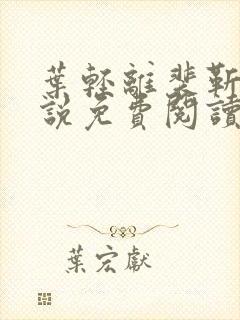 葉輕離裴靳
說免費閱讀
葉宏獻